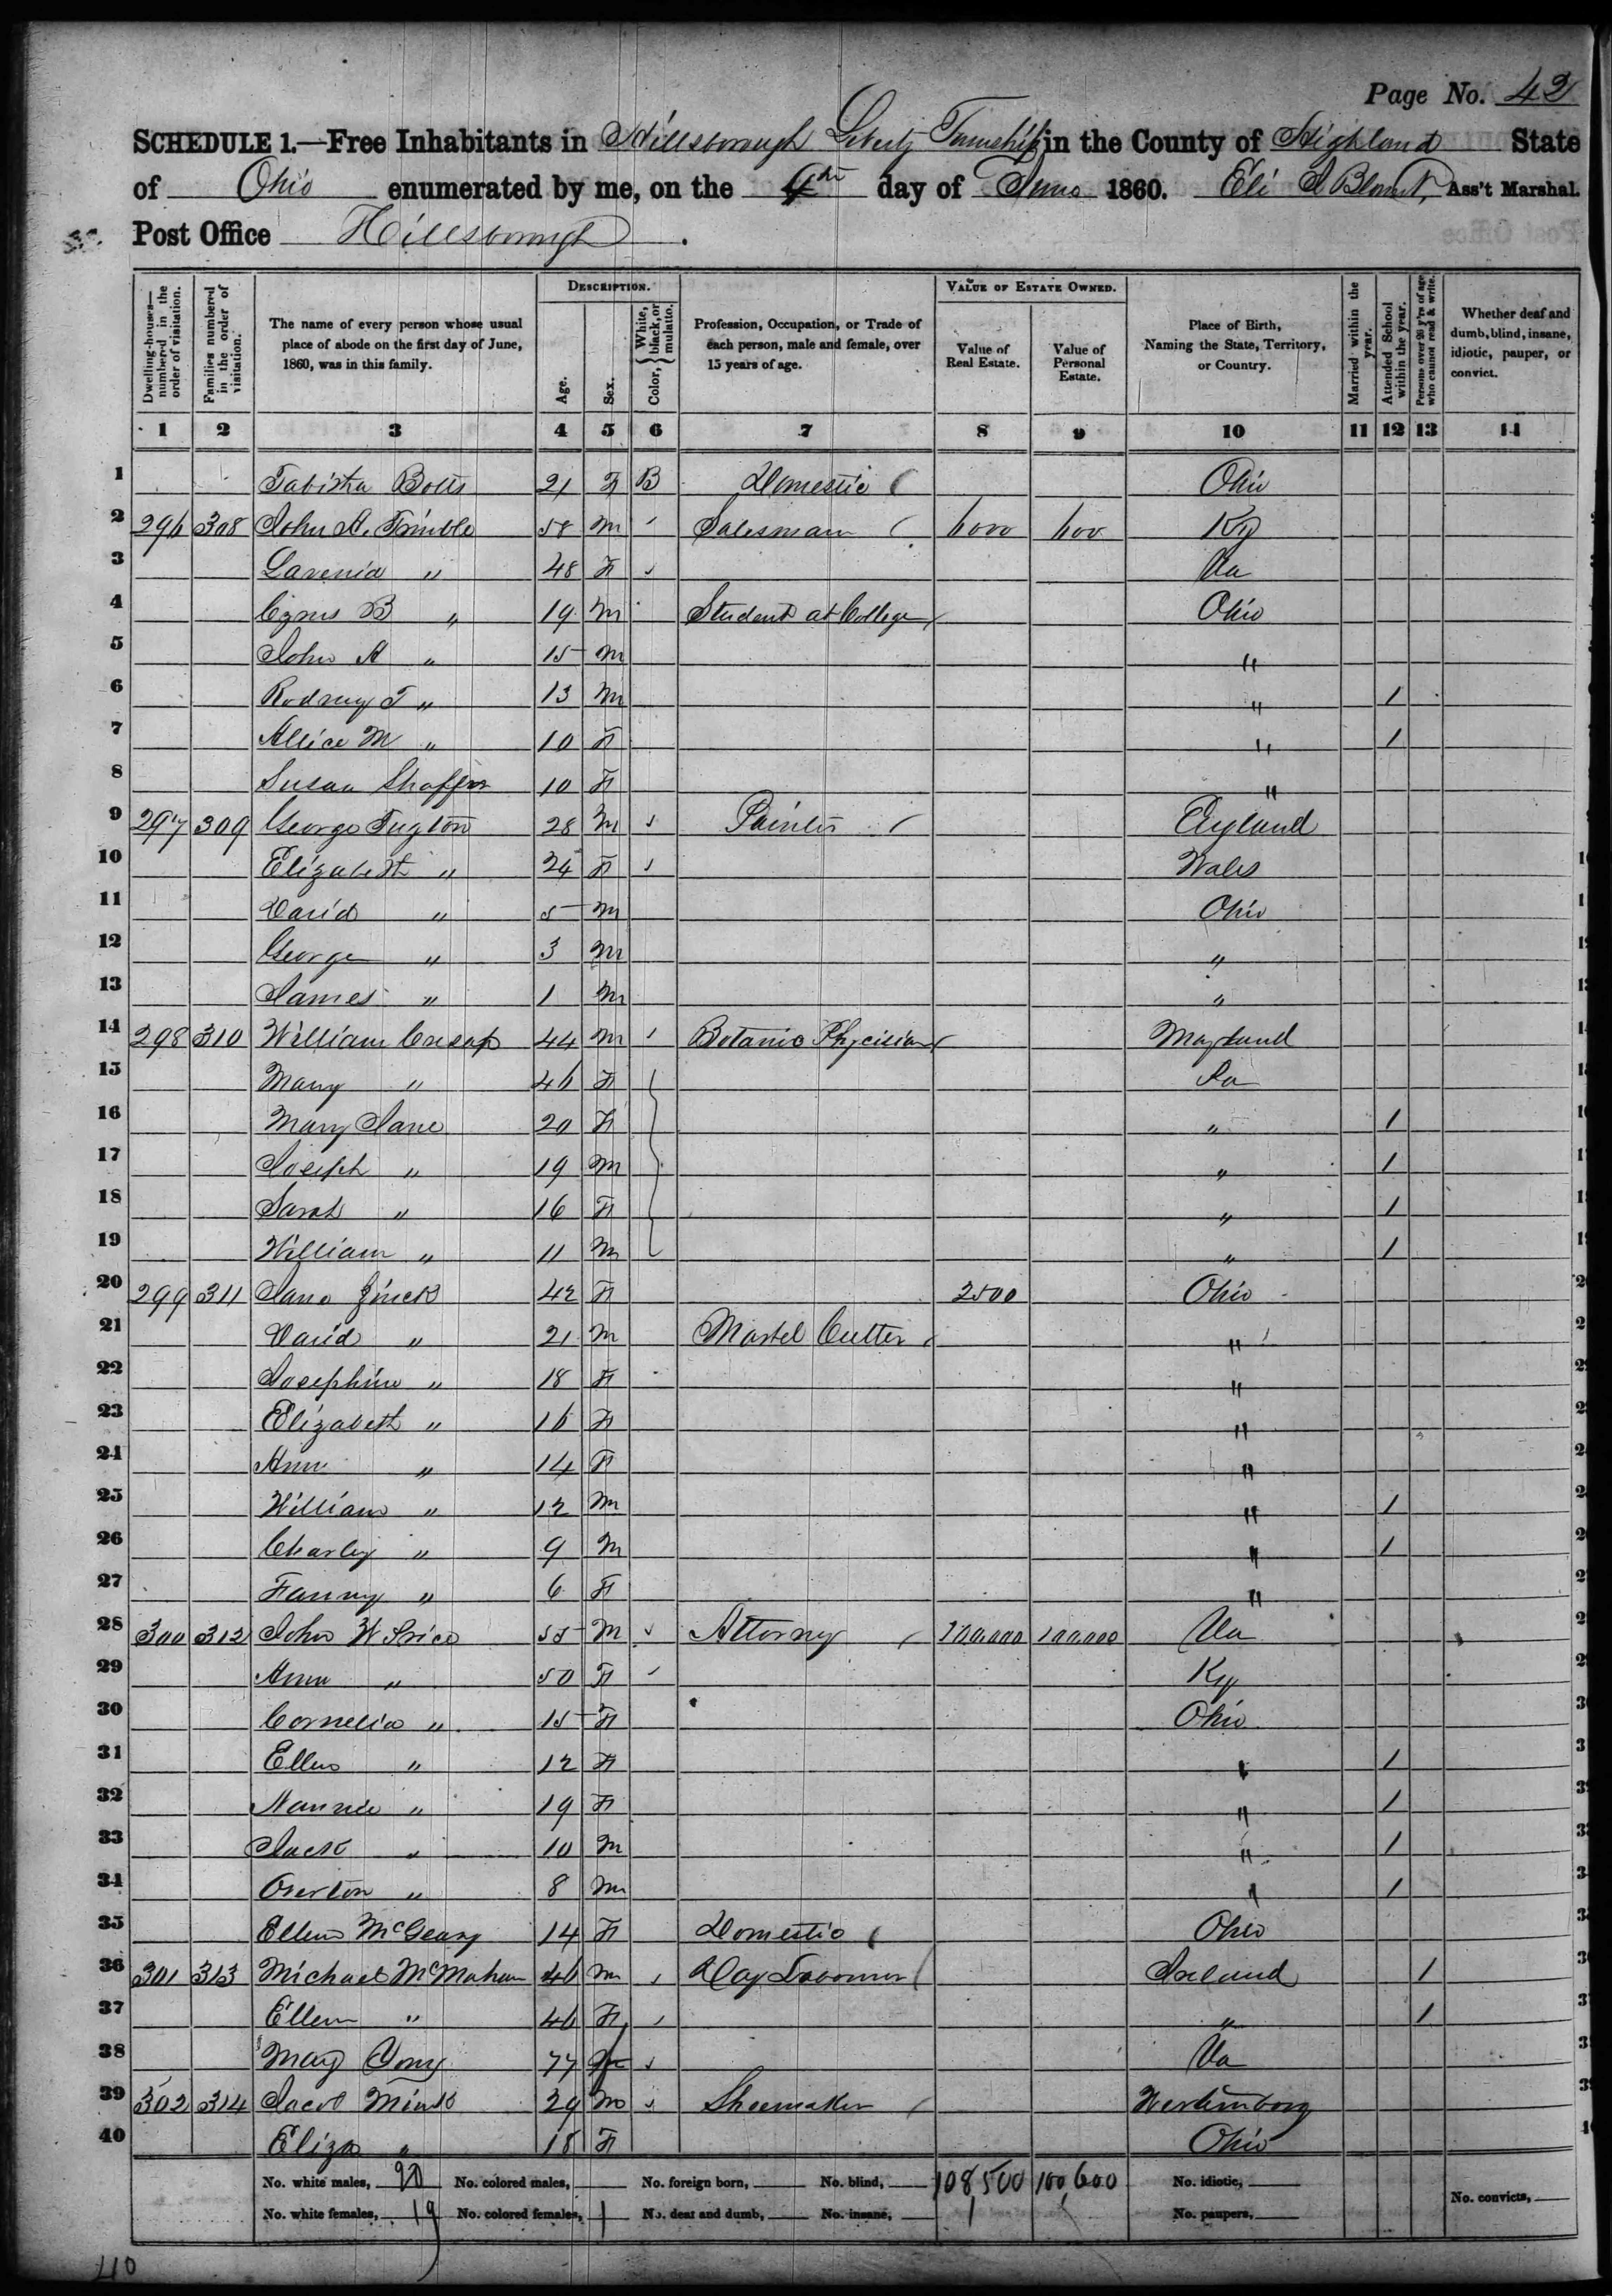 Page No. 42
SCHEDULE 1.—Free Inhabitants in Hillsborough Liberty Township in the County of Highland State
of Ohio enumerated by me, on the day of June 1860. Eli Ass't Marshal.
Post Office Hillsborough
DESCRIPTION.
VALUE OF ESTATE OWNED.
Dwelling-houses—numbered in the order of visitation.
Families numbered in the order of visitation.
The name of every person whose usual place of abode on the first day of June, 1860, was in this family.
Age.
Sex.
Color, { White, black, or mulatto.
Profession, Occupation, or Trade of each person, male and female, over 15 years of age.
Value of Real Estate.
Value of Personal Estate.
Place of Birth, Naming the State, Territory, or Country.
Married within the year.
Attended School within the year.
Persons over 20 y'rs of age who cannot read & write.
Whether deaf and dumb, blind, insane, idiotic, pauper, or convict.
1 2 3 4 5 6 7 8 9 10 11 12 13 14
1 Tabitha Botts 21 F B Domestic Ohio
2 296 308 John A. Trimble 58 M Salesman 6000 600 Ky
3 Lavenia " 48 F Va
4 Cyrus B " 19 M Student at College Ohio
5 John A " 15 M "
6 Rodney T " 13 M " 1
7 Allice M " 10 F " 1
8 Susan Shaffer 10 F "
9 297 309 George 28 M Painter England
10 Elizabeth " 24 F Wales
11 David " 5 M Ohio
12 George " 3 M "
13 James " 1 M "
14 298 310 William Cresap 44 M Botanic Phycician Maryland
15 Mary " 46 F Pa
16 Mary Jane 20 F " 1
17 Joseph " 19 M " 1
18 Sarah " 16 F " 1
19 William " 11 M " 1
20 299 311 Jane Zinck 42 F 2500 Ohio
21 David " 21 M Marbel Cutter "
22 Josephine " 18 F "
23 Elizabeth " 16 F "
24 Ann " 14 F "
25 William " 12 M " 1
26 Charley " 9 M " 1
27 Fanny " 6 F "
28 300 312 John W Price 55 M Attorney 100,000 100,000 Va
29 Ann " 50 F Ky
30 Cornelia " 15 F Ohio
31 Ellen " 12 F " 1
32 Nannie " 19 F " 1
33 Jack " 10 M " 1
34 Overton " 8 M " 1
35 Ellen McGeary 14 F Domestic Ohio
36 301 313 Michael McMahan 46 M Day Laborer Ireland 1
37 Ellen " 46 F " 1
38 Mary 77 Va
39 302 314 Jacob 29 M Shoemaker Wertimborg
40 Eliza " 18 F Ohio
No. white males, 20 No. colored males, No. foreign born, No. blind, 108,500 100,600 No. idiotic,
No. white females, 19 No. colored females, 1 No. deaf and dumb, No. insane, No. paupers, No. convicts,
40